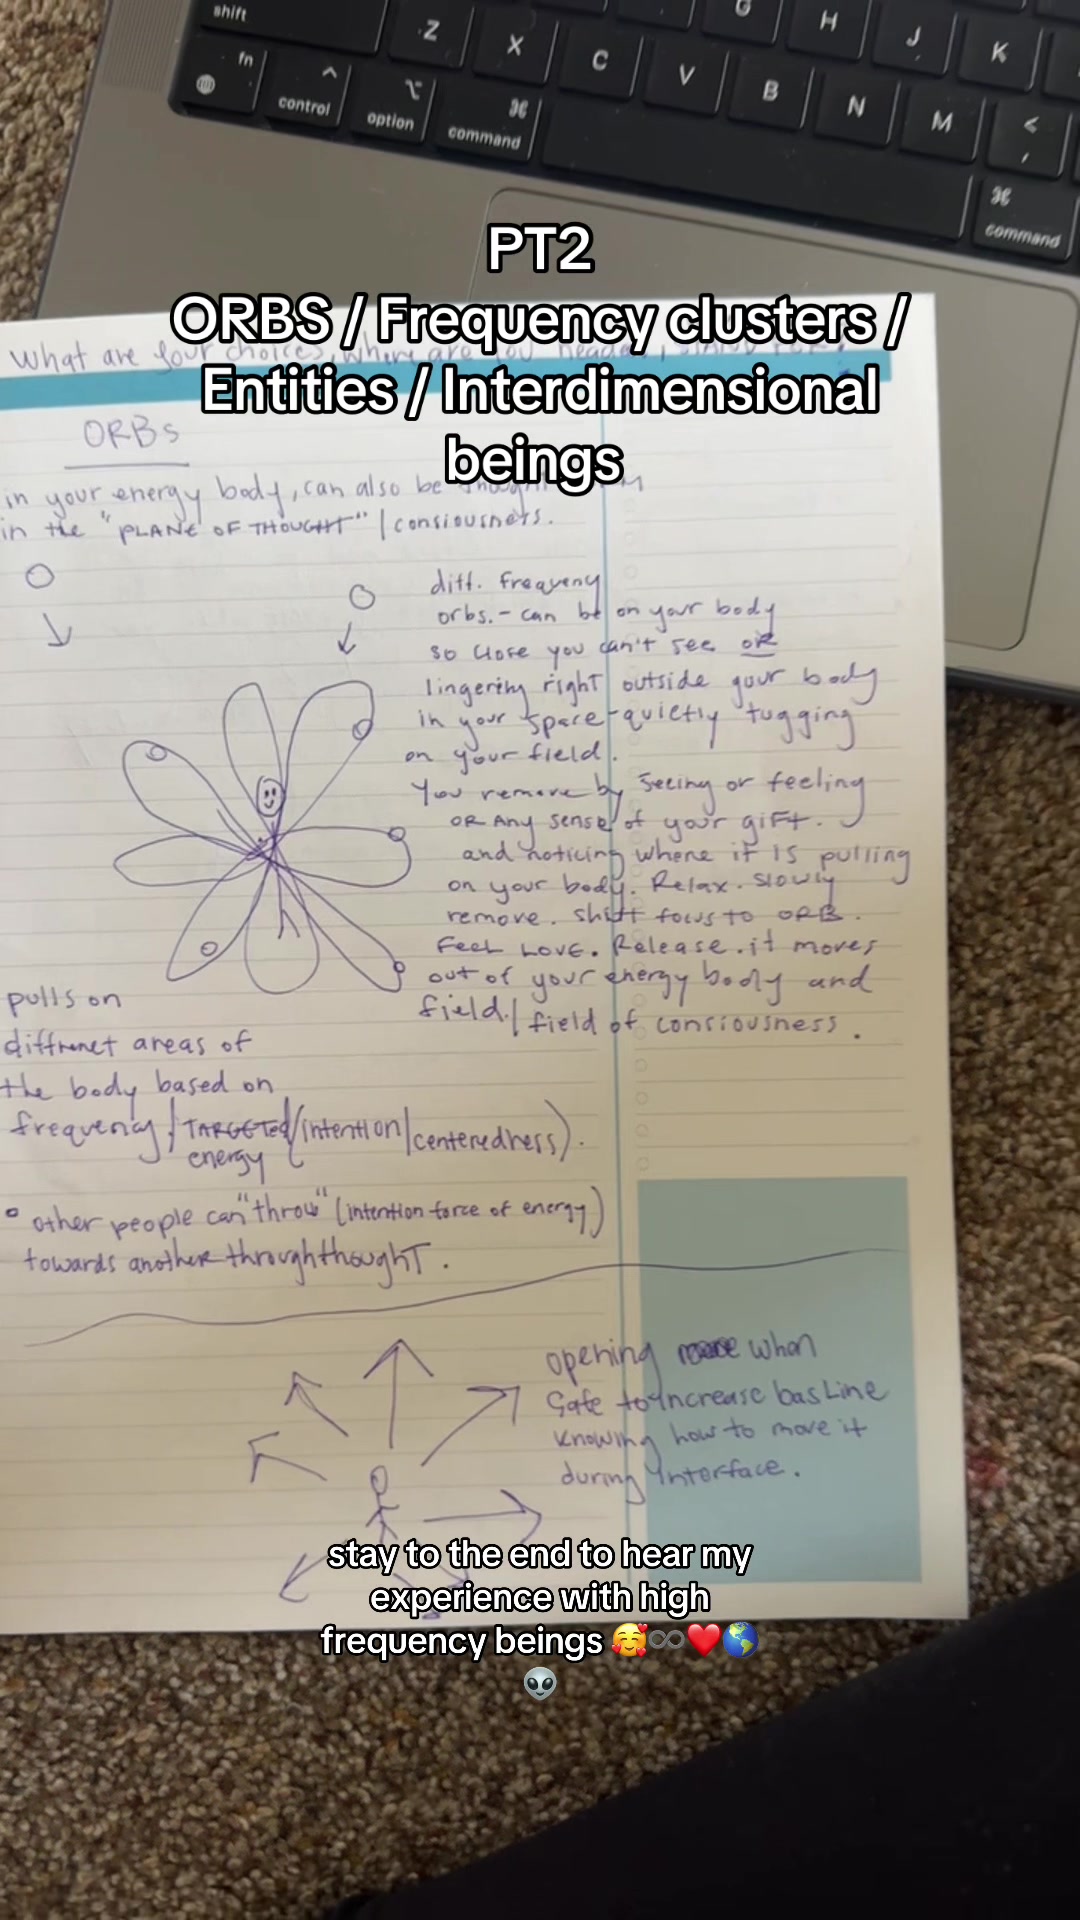 shift
Z
X
C
V
B
N
M
G
H
J
K
<
,
fn
control
option
⌘
command
⌘
command
PT2
ORBS / Frequency clusters /
Entities / Interdimensional
beings
What are your choices, where are you
ORBs
in your energy body, can also be
in the "PLANE OF THOUGHT" / consiousness.
diff. frequeny
orbs. - can be on your body
so close you can't see OR
lingering right outside your body
in your space - quietly tugging
on your field.
You remove by seeing or feeling
OR Any sense of your gift.
and noticing where it is pulling
on your body. Relax. slowly
remove. Shift focus to ORB.
Feel LOVE. Release. it moves
out of your energy body and
field. / field of consiousness.
pulls on
areas of
the body based on
frequency / TARGETED / intention / centeredness).
energy
other people can "throw" (intention force of energy)
towards another through thought.
opening when
safe to increase basLine
knowing how to move it
during interface.
stay to the end to hear my
experience with high
frequency beings 🥰♾❤️🌎
👽